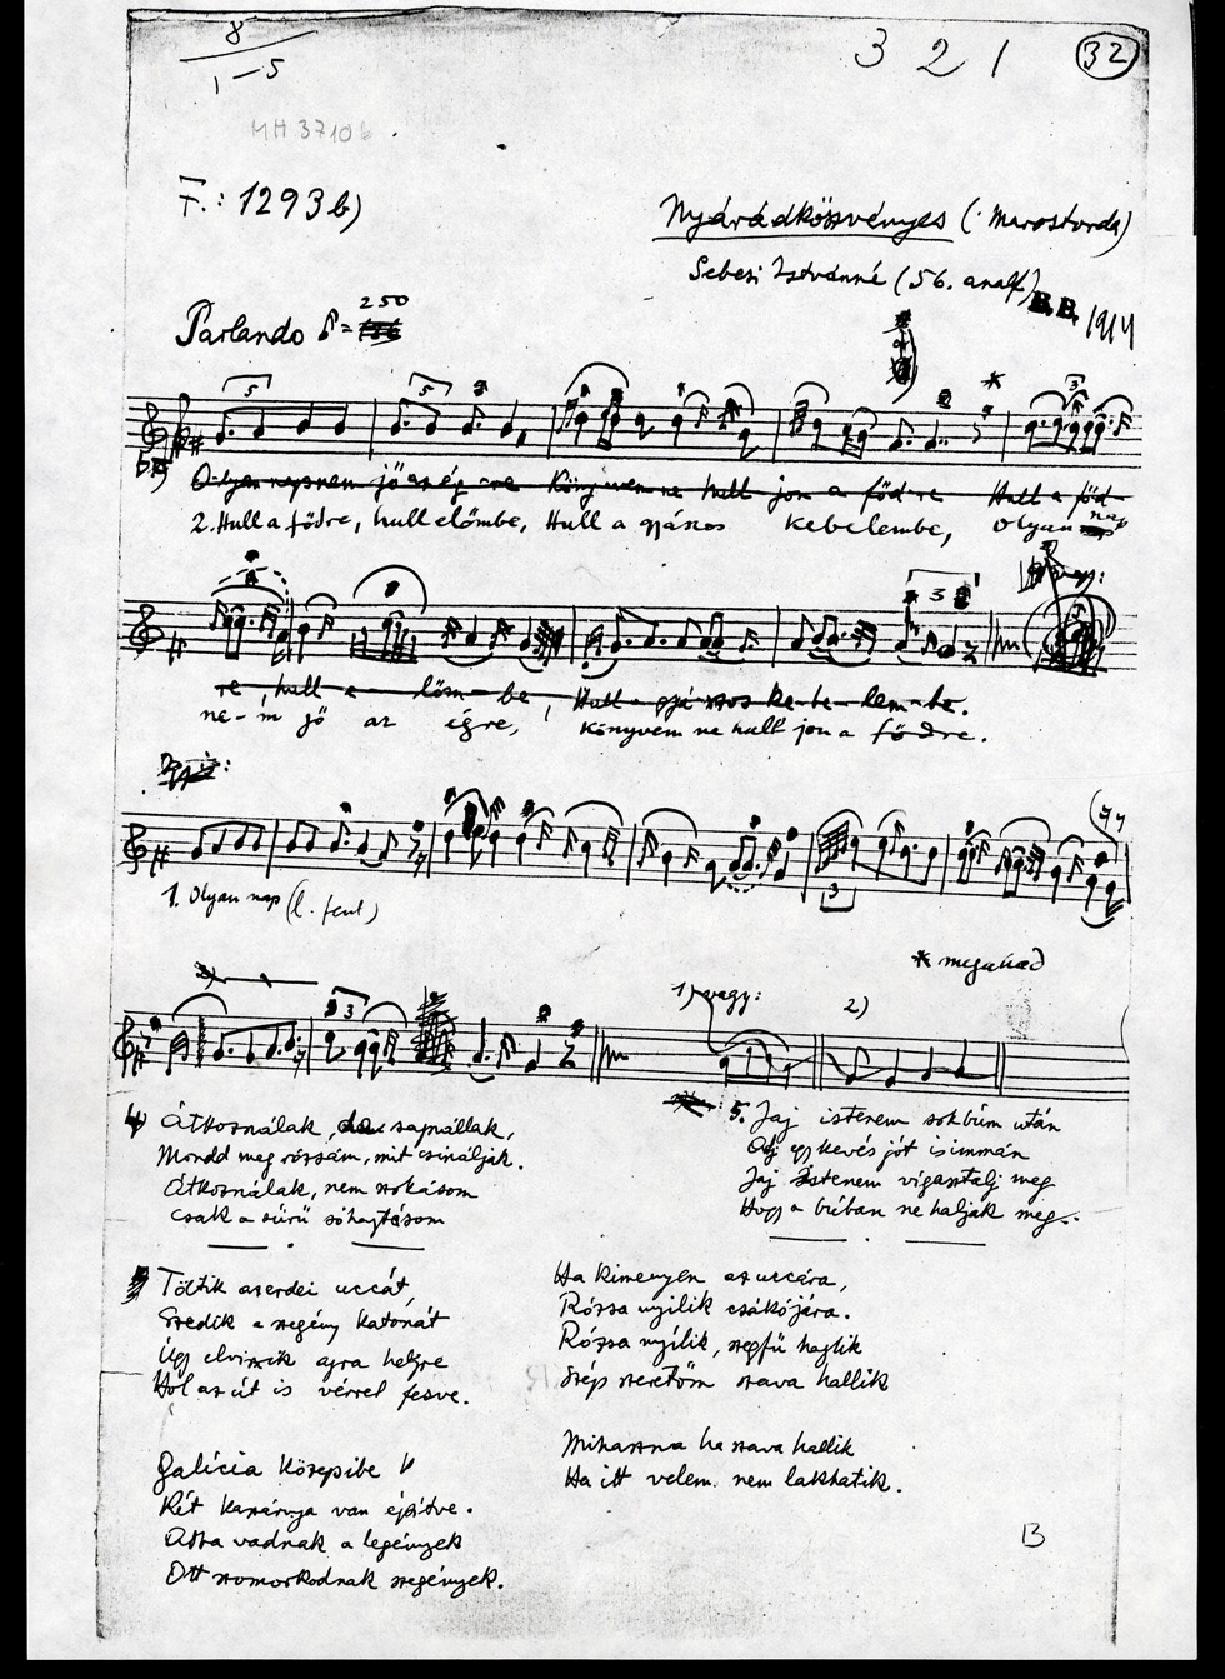 8
1-5
3 2 1 32
MH 3710 b
F.: 1293 b)
Nyárádköszvényes (: Marostorda)
Sebesi Istvánné (56. analf)
B.B. 1914
250
Parlando ♪=
5 5 3
Olyan nap nem jő az ég-re Könyvem ne hull jon a föd-re Hull a föd-
2. Hull a födre, hull előmbe, Hull a gyászos kebelembe, Olyan nap
3
re, hull e- lőm-be, Hull a gyászos ke-be-lem-be.
ne-m jő az égre, Könyvem ne hull jon a födre.
1. Olyan nap (l. fent)
3
* megállad
3
1) vagy: 2)
4 Átkoználak, de sajnállak,
Mondd meg rózsám, mit csináljak.
Átkoználak, nem szokásom
Csak a sürü sóhajtásom
5. Jaj istenem sok búm után
Adj egy kevés jót is immán
Jaj istenem vigasztalj meg
Hogy a búban ne haljak meg.
Töltik az erdei uccát,
Szedik a szegény katonát
Úgy elviszik azra helyre
Hol az út is vérrel festve.
Ha kimenyen az uccára,
Rózsa nyílik csákójára.
Rózsa nyílik, szegfű hajlik
Szép szeretőm szava hallik
Galícia közepibe
Két kaszárnya van építve.
Abba vadnak a legények
Ott szomorkodnak szegények.
Mihaszna ha szava hallik
Ha itt velem nem lakhatik.
B